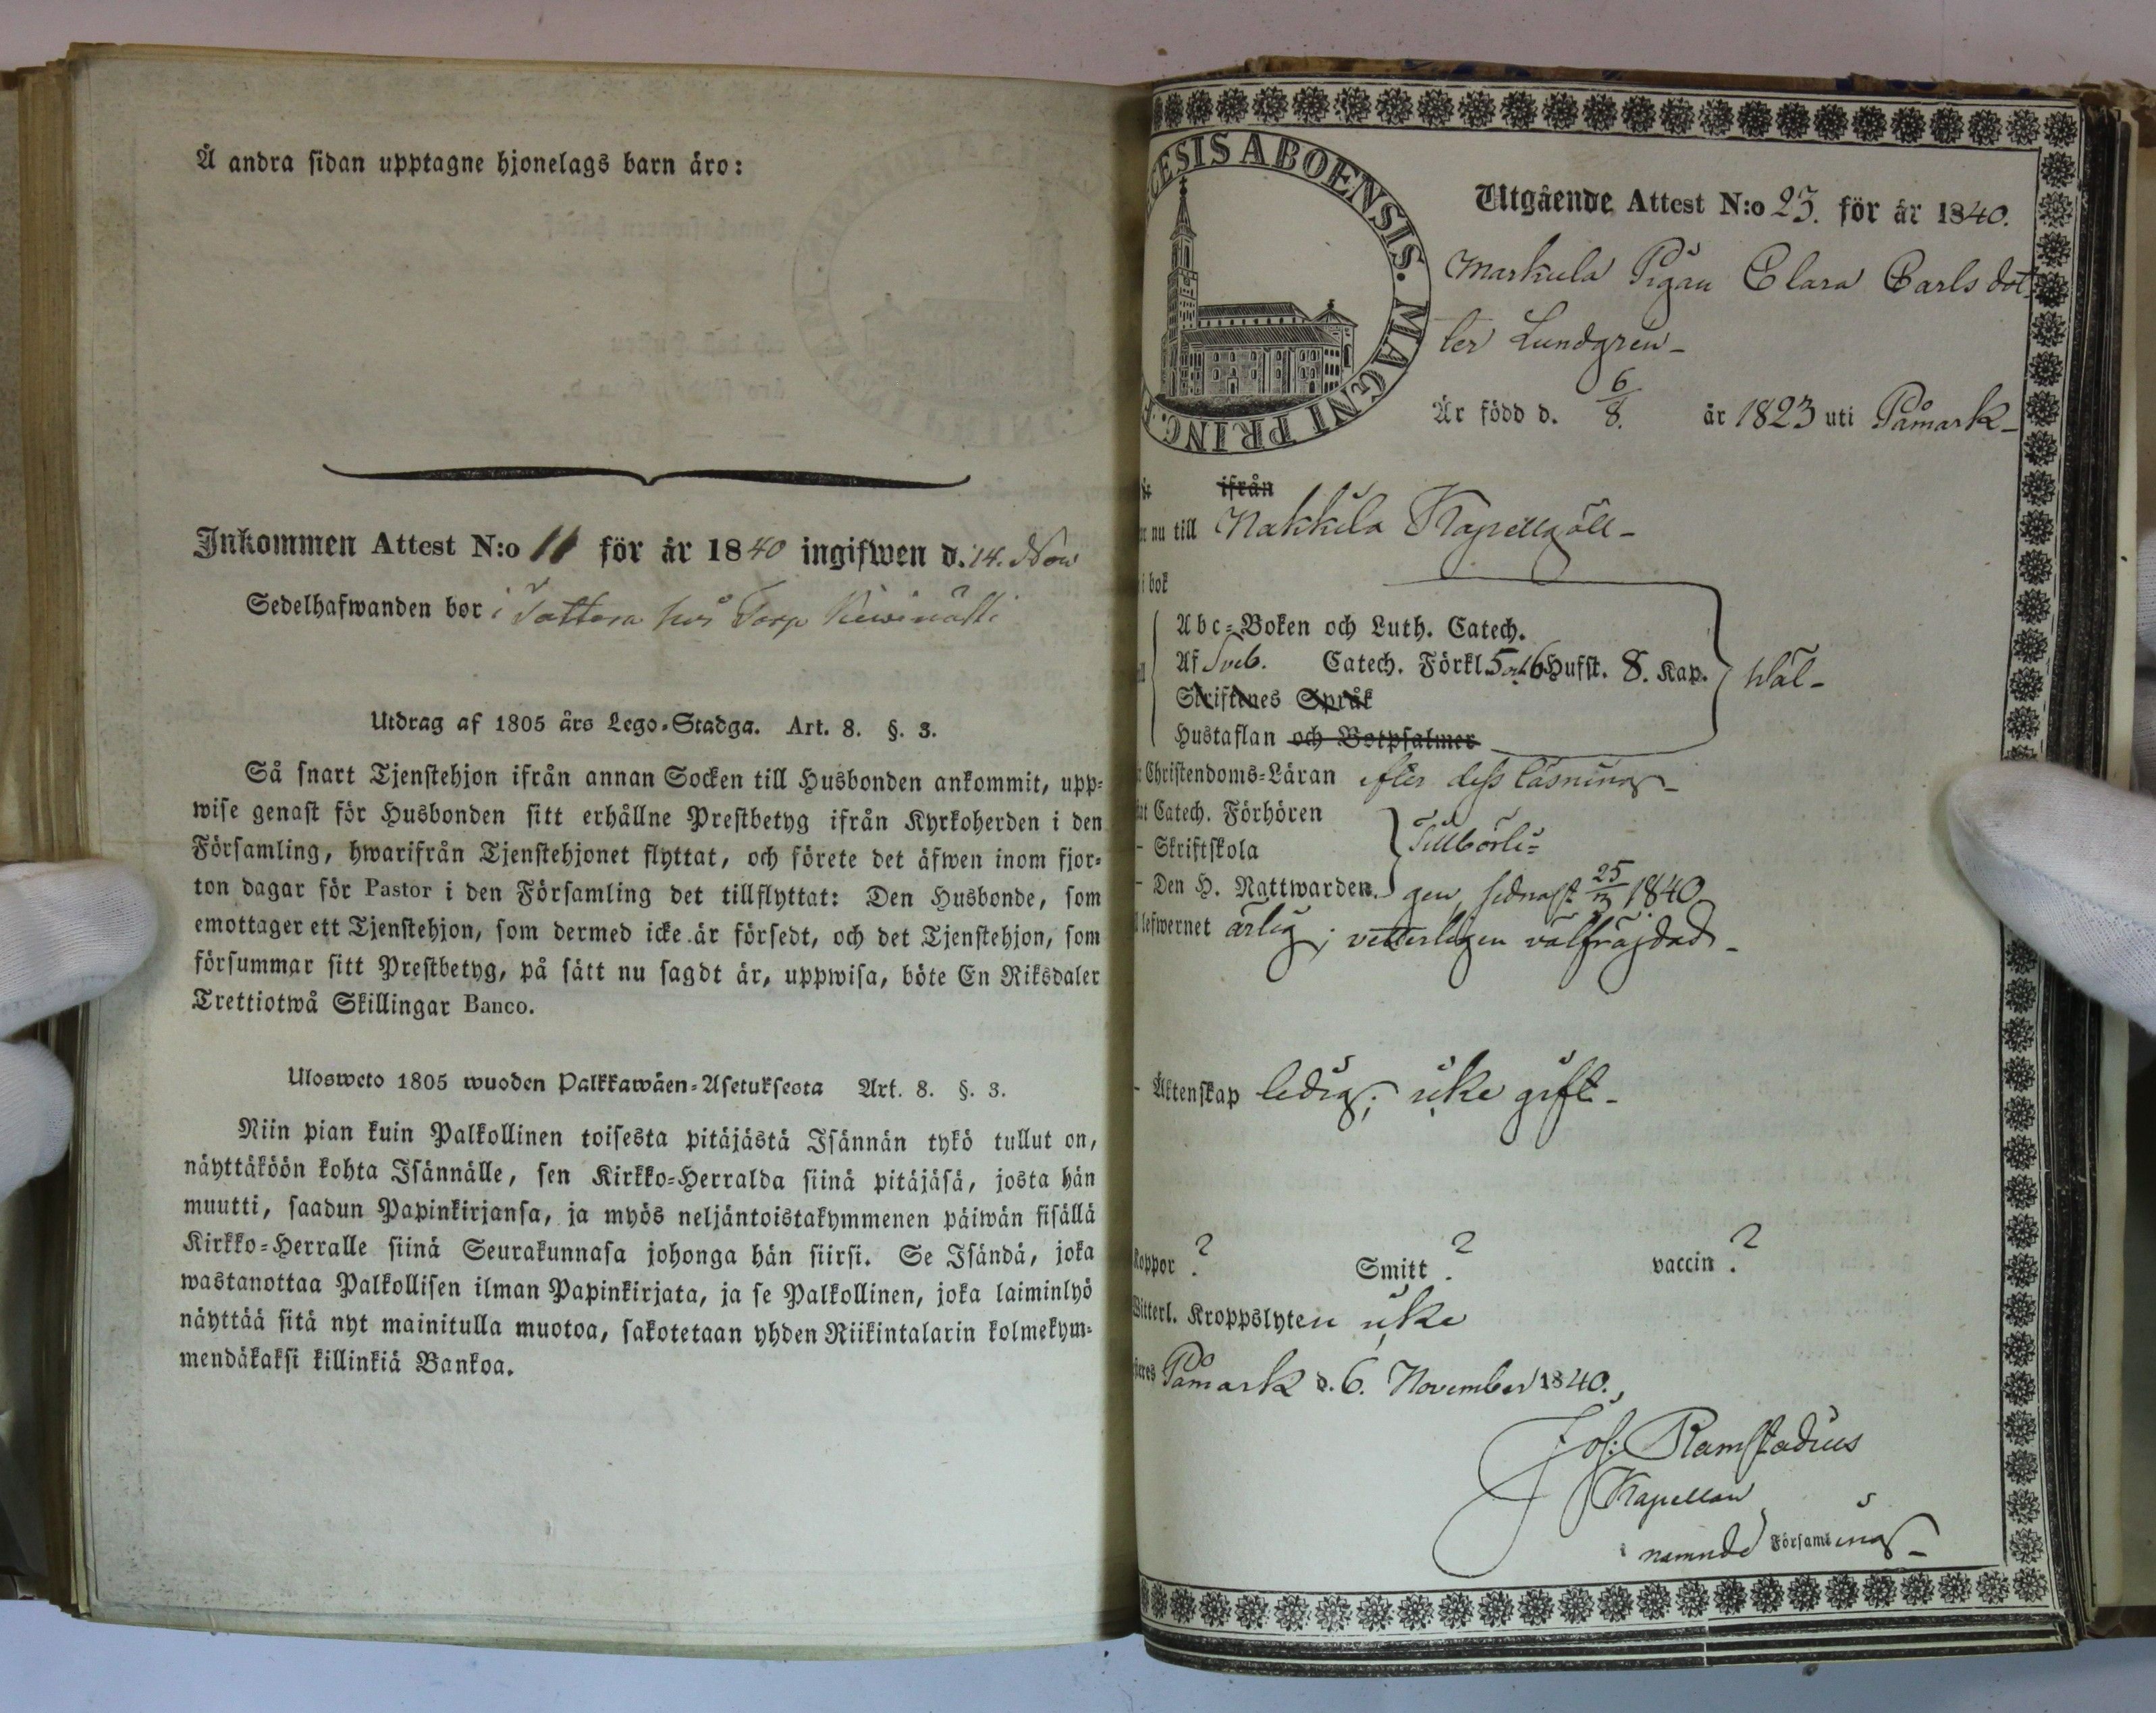 Å andra sidan upptagne hjonelags barn äro:
Inkommen Attest N:o 11 för år 1840 ingifwen d. 14. Nov
Sedelhafwanden bor i Tattara hos Torp
Utdrag af 1805 års Lego-Stadga. Art. 8. §. 3.
Så snart Tjenstehjon ifrån annan Socken till Husbonden ankommit, upp-
wise genast för Husbonden sitt erhållne Prestbetyg ifrån Kyrkoherden i den
Församling, hwarifrån Tjenstehjonet flyttat, och förete det äfwen inom fjor-
ton dagar för Pastor i den Församling det tillflyttat: Den Husbonde, som
emottager ett Tjenstehjon, som dermed icke är försedt, och det Tjenstehjon, som
försummar sitt Prestbetyg, på sätt nu sagdt är, uppwisa, böte En Riksdaler
Trettiotwå Skillingar Banco.
Ulosweto 1805 wuoden Palkkawäen-Asetuksesta Art. 8. §. 3.
Niin pian kuin Palkollinen toisesta pitäjästä Isännän tykö tullut on,
näyttäköön kohta Isännälle, sen Kirkko-Herralda siinä pitäjäsä, josta hän
muutti, saadun Papinkirjansa, ja myös neljäntoistakymmenen päiwän sisällä
Kirkko-Herralle siinä Seurakunnasa johonga hän siirsi. Se Isändä, joka
wastanottaa Palkollisen ilman Papinkirjata, ja se Palkollinen, joka laiminlyö
näyttää sitä nyt mainitulla muotoa, sakotetaan yhden Riikintalarin kolmekym-
mendäkaksi killinkiä Bankoa.
CESIS ABOENSIS. MAGNI PRINC. F
Utgående Attest N:o 23. för år 1840.
Markula Pigan Clara Carlsdot
ter Lundgren
Är född d. 6/8. år 1823 uti Påmark
ifrån
nu till Nakkila Kapellgäll
i bok
Abc-Boken och Luth. Catech.
Af Sveb. Catech. Förkl 5 och 6 Hufst. 8. Kap. Wäl
Skriftenes Språk
Hustaflan och Botpsalmer
Christendoms-Läran efter dess läsning
Catech. Förhören
Skriftskola Tillbörli=
Den H. Nattwarden. gen, sednast 25/ 1840
lefwernet ärlig; vetterligen välfräjdad
Äktenskap ledig; icke gift
koppor ? Smitt ? vaccin ?
Witterl. Kroppslyten icke
Påmark d. 6. November 1840.
Jos: Ramstadius
Kapellan
i nämnde Församling